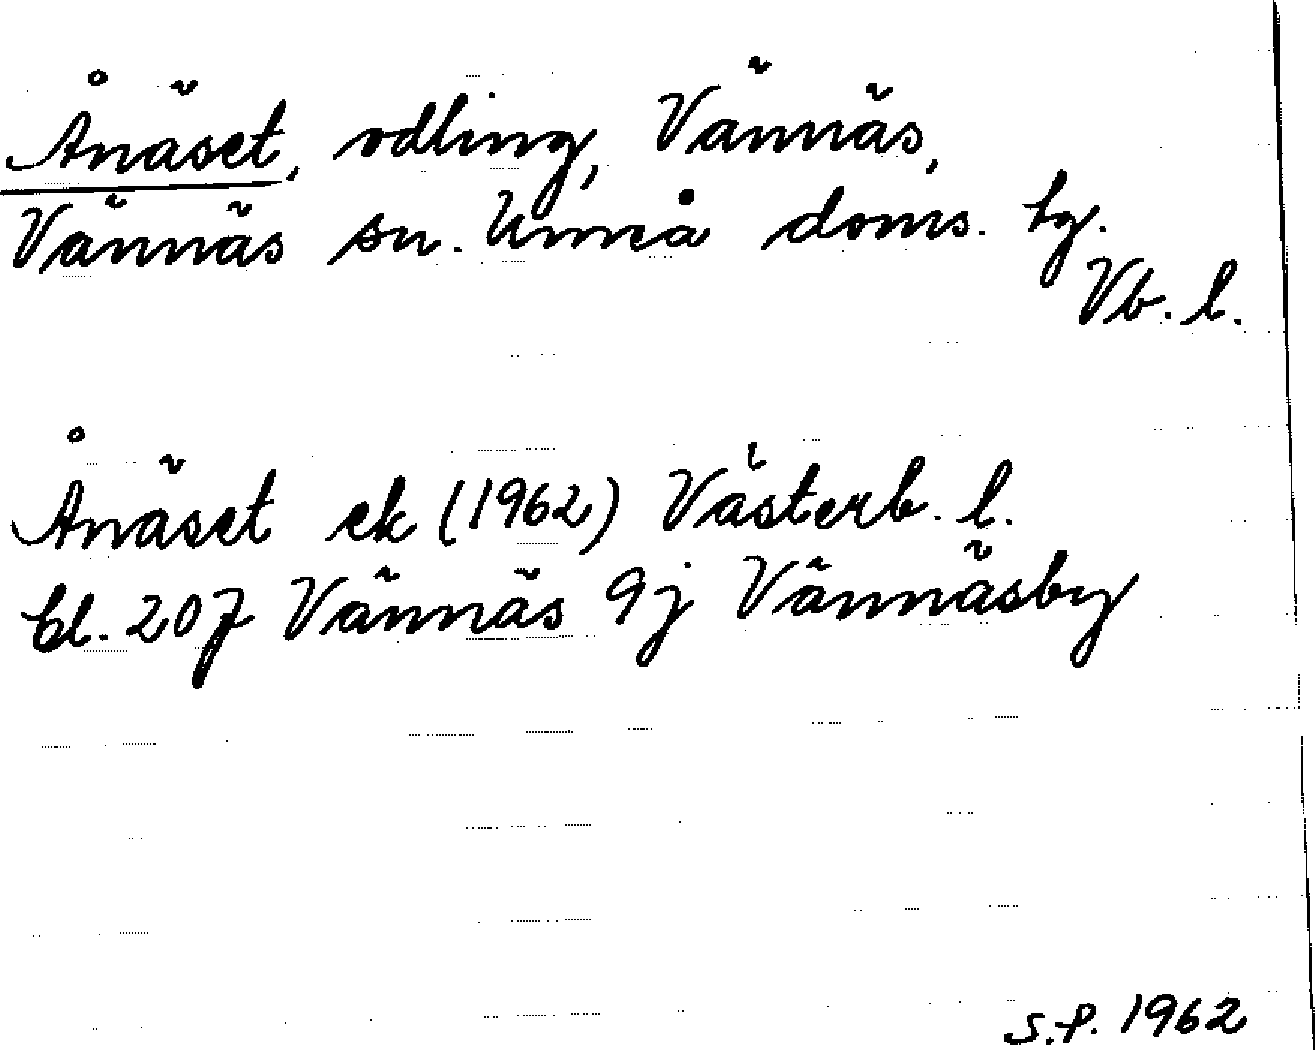 Ånäset, odling, Vännäs,
Vännäs sn. Umeå doms. tg.
Vb. l.
Ånäset ek (1962) Västerb. l.
bl. 20J Vännäs 9j Vännäsby
S.P. 1962